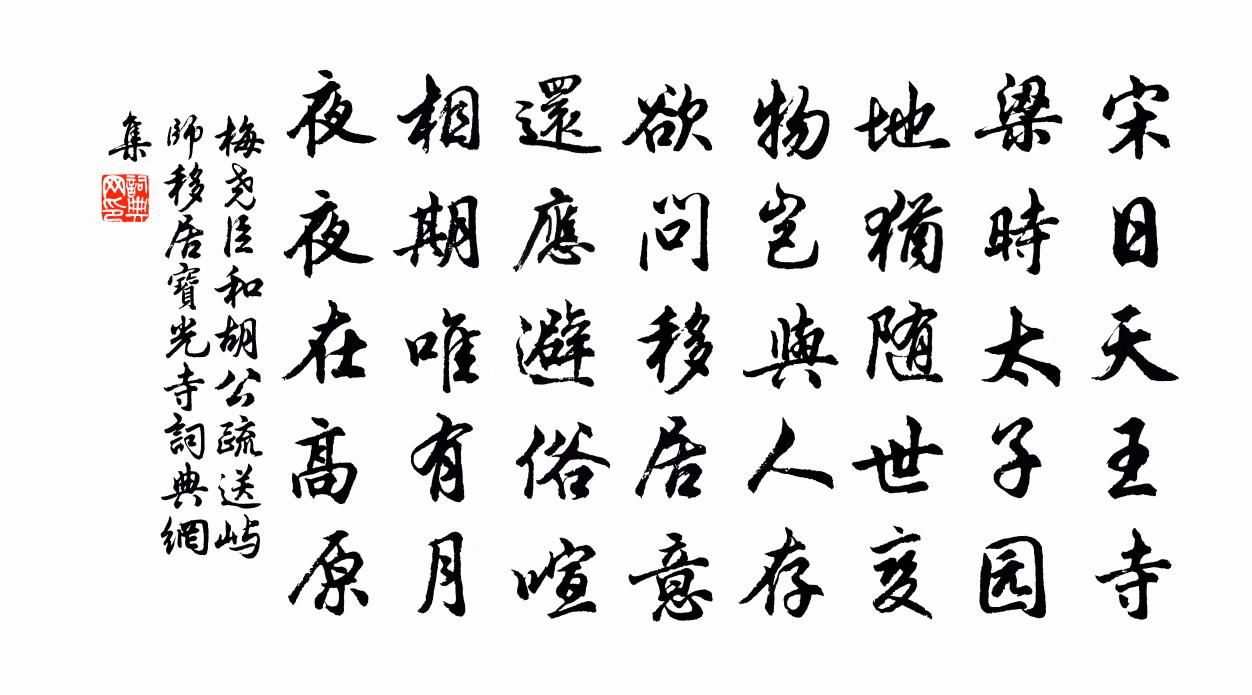 宋日天王寺
梁時太子园
地猶随世变
物岂與人存
欲问移居意
還應避俗喧
相期唯有月
夜夜在高原
梅尧臣和胡公疏送屿
師移居寶光寺詞典網
集
詞典网印